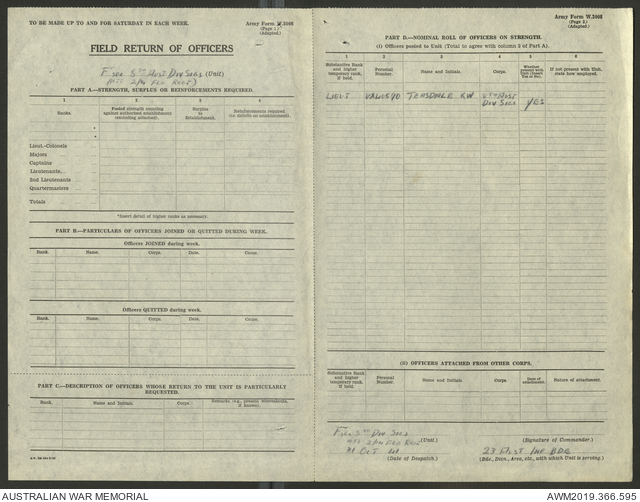 TO BE MADE UP TO AND FOR SATURDAY IN EACH WEEK.
Army Form W.3008
(Page 1)
(Adapted)
FIELD RETURN OF OFFICERS
(Unit)
PART A.—STRENGTH, SURPLUS OR REINFORCEMENTS REQUIRED.
1 2 3 4
Ranks.
Posted strength counting against authorised establishment (excluding attached).
Surplus to Establishment.
Reinforcements required (to details on establishment).
Lieut.-Colonels
Majors
Captains
Lieutenants
2nd Lieutenants
Quartermasters
Totals
*Insert detail of higher ranks as necessary.
PART B.—PARTICULARS OF OFFICERS JOINED OR QUITTED DURING WEEK.
Officers JOINED during week.
Rank. Name. Corps. Date. Cause.
Officers QUITTED during week.
Rank. Name. Corps. Date. Cause.
PART C.—DESCRIPTION OF OFFICERS WHOSE RETURN TO THE UNIT IS PARTICULARLY REQUESTED.
Rank. Name and Initials. Corps. Remarks (e.g., present whereabouts, if known).
Army Form W.3008
(Page 2)
(Adapted)
PART D.—NOMINAL ROLL OF OFFICERS ON STRENGTH.
(i) Officers posted to Unit (Total to agree with column 2 of Part A).
1 2 3 4 5 6
Substantive Rank and higher temporary rank, if held.
Personal Number.
Name and Initials.
Corps.
Whether present with Unit (Insert Yes or No).
If not present with Unit, state how employed.
LIEUT
DIV SIGS YES
(ii) OFFICERS ATTACHED FROM OTHER CORPS.
Substantive Rank and higher temporary rank, if held.
Personal Number.
Name and Initials.
Corps.
Date of attachment.
Nature of attachment.
(Unit.) (Signature of Commander.)
OCT 41 23 AUST INF BDE
(Date of Despatch.) (Bde., Divn., Area, etc., with which Unit is serving.)
AUSTRALIAN WAR MEMORIAL AWM2019.366.595